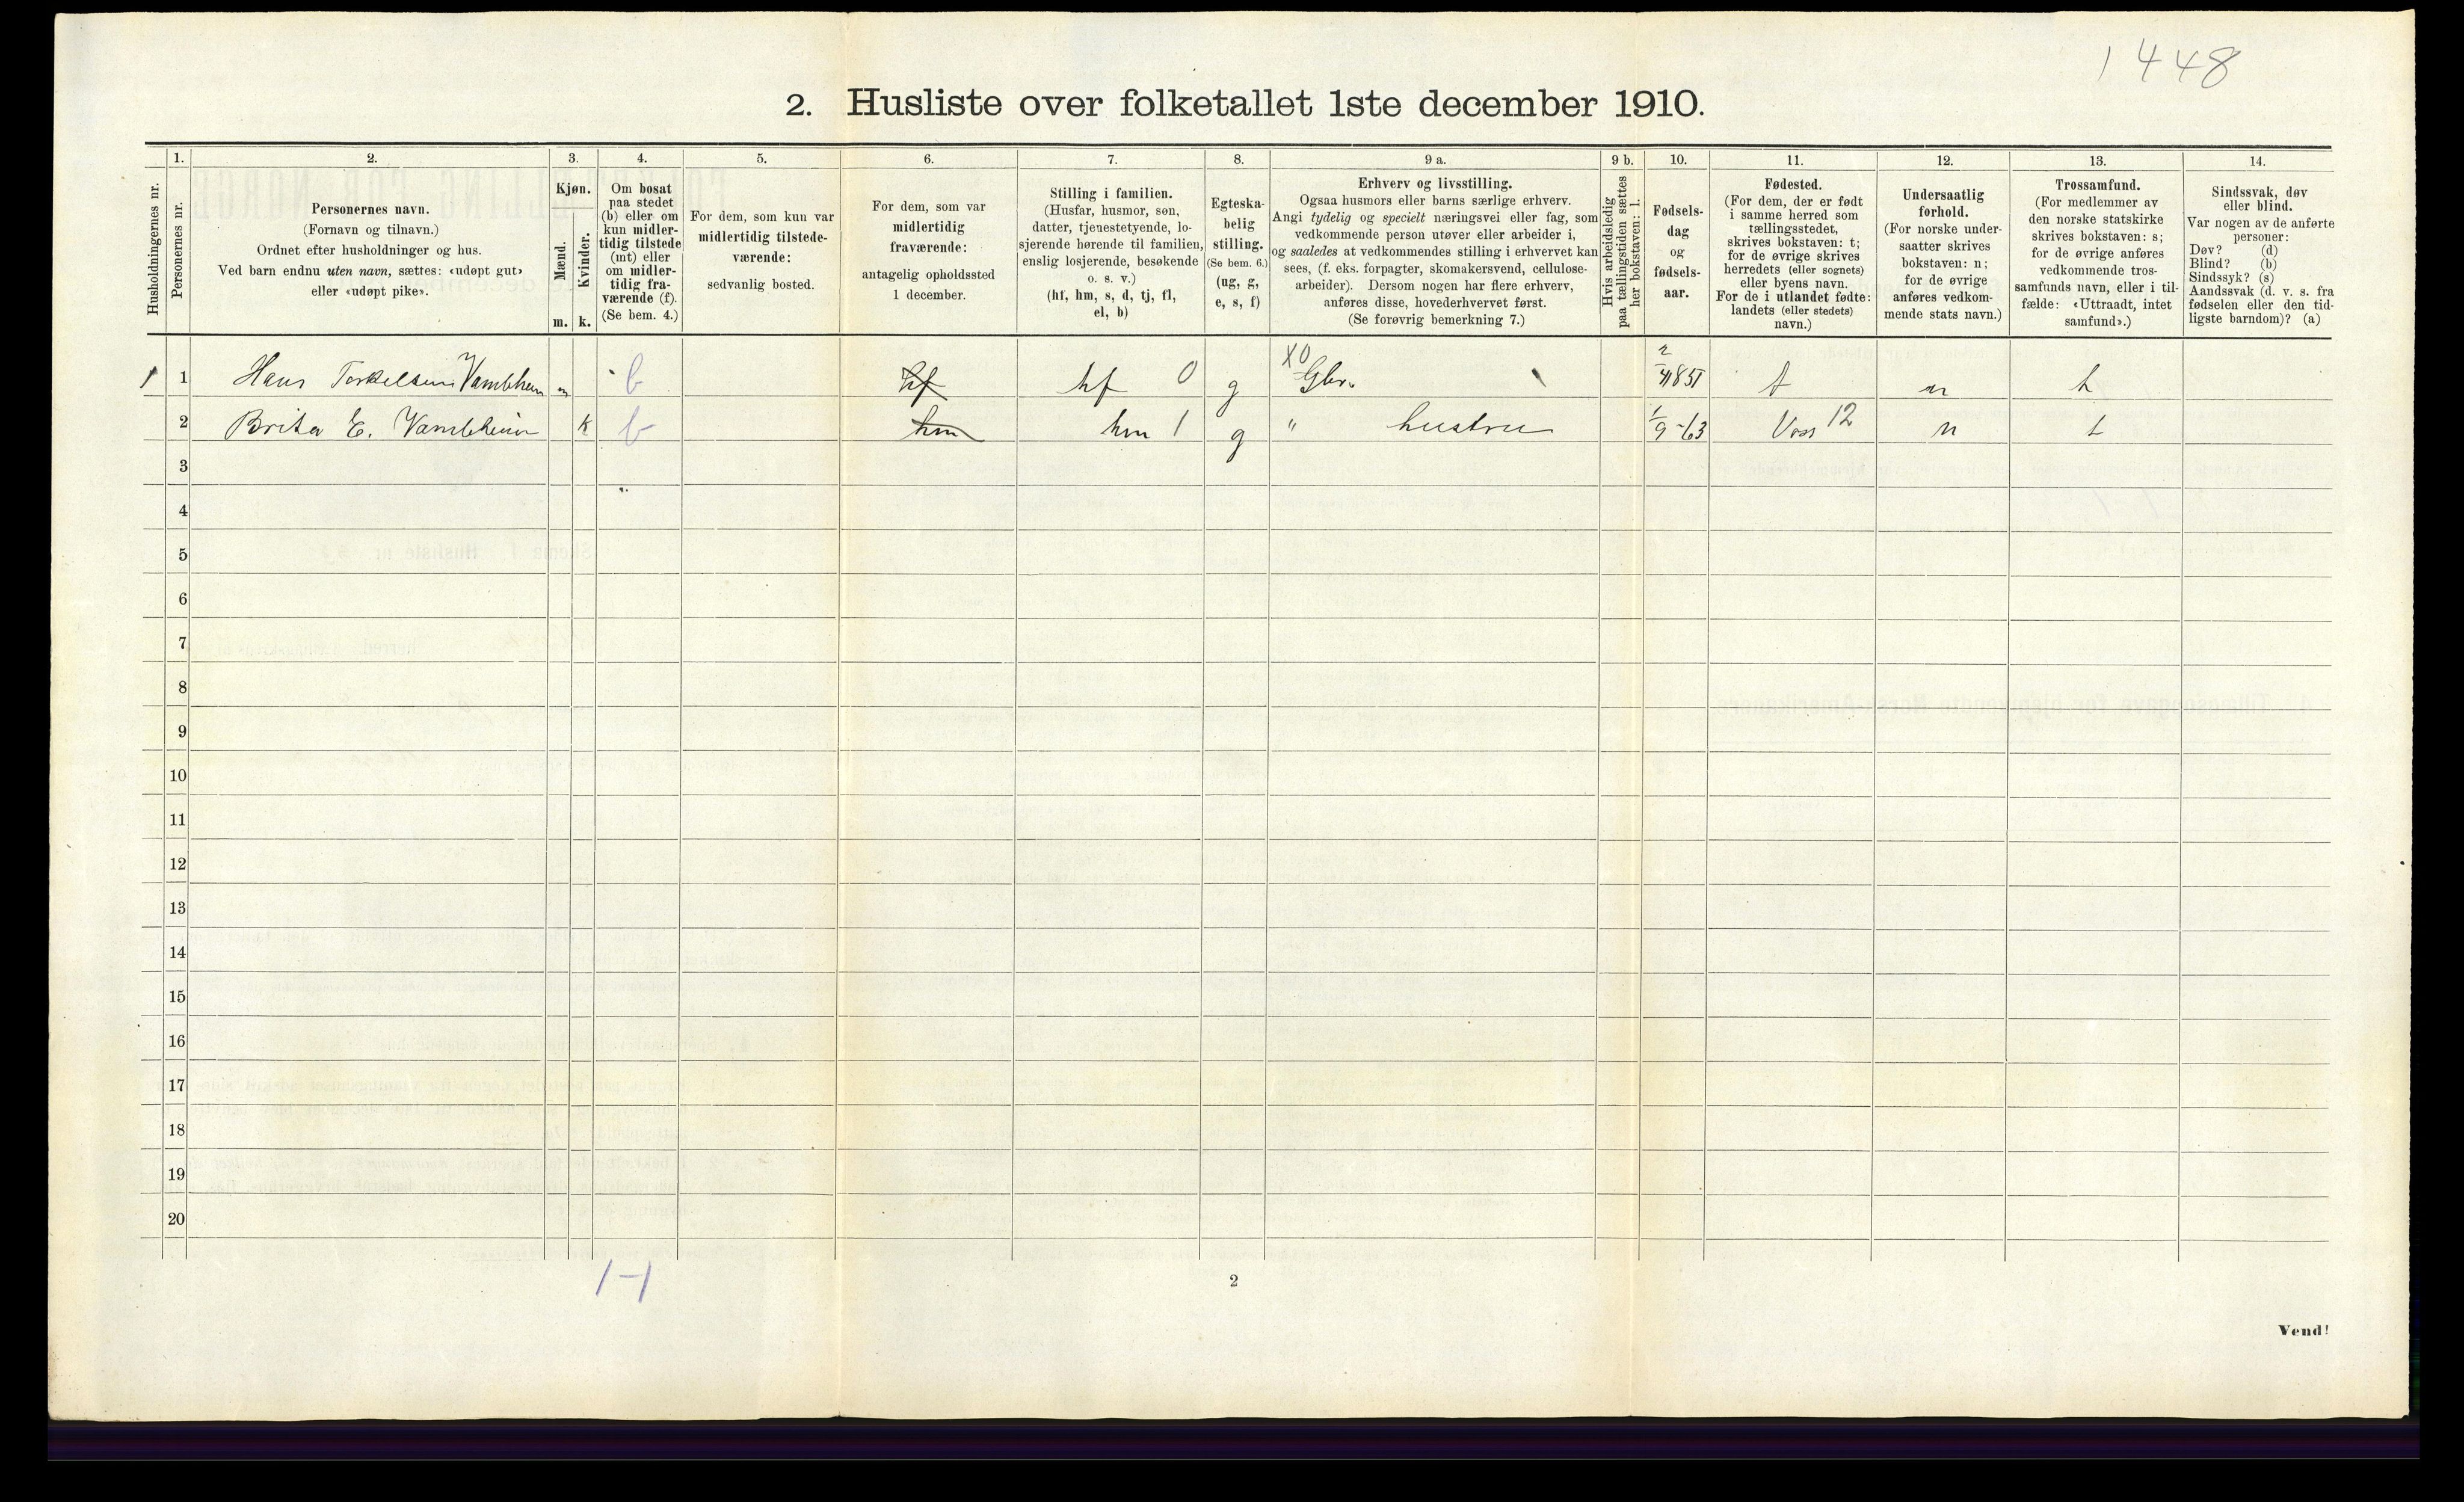 1448
2. Husliste over folketallet 1ste december 1910.
Husholdningernes nr.
1.
Personernes nr.
2.
Personernes navn.
(Fornavn og tilnavn.)
Ordnet efter husholdninger og hus.
Ved barn endnu uten navn, sættes: «udøpt gut»
eller «udøpt pike».
3.
Kjøn.
Mænd.
Kvinder.
m. k.
4.
Om bosat
paa stedet
(b) eller om
kun midler-
tidig tilstede
(mt) eller
om midler-
tidig fra-
værende (f).
(Se bem. 4.)
5.
For dem, som kun var
midlertidig tilstede-
værende:
sedvanlig bosted.
6.
For dem, som var
midlertidig
fraværende:
antagelig opholdssted
1 december.
7.
Stilling i familien.
(Husfar, husmor, søn,
datter, tjenestetyende, lo-
sjerende hørende til familien,
enslig losjerende, besøkende
o. s. v.)
(hf, hm, s, d, tj, fl,
el, b)
8.
Egteska-
belig
stilling.
(Se bem. 6.)
(ug, g,
e, s, f)
9 a.
Erhverv og livsstilling.
Ogsaa husmors eller barns særlige erhverv.
Angi tydelig og specielt næringsvei eller fag, som
vedkommende person utøver eller arbeider i,
og saaledes at vedkommendes stilling i erhvervet kan
sees, (f. eks. forpagter, skomakersvend, cellulose-
arbeider). Dersom nogen har flere erhverv,
anføres disse, hovederhvervet først.
(Se forøvrig bemerkning 7.)
9 b.
Hvis arbeidsledig
paa tællingstiden sættes
her bokstaven: l.
10.
Fødsels-
dag
og
fødsels-
aar.
11.
Fødested.
(For dem, der er født
i samme herred som
tællingsstedet,
skrives bokstaven: t;
for de øvrige skrives
herredets (eller sognets)
eller byens navn.
For de i utlandet fødte:
landets (eller stedets)
navn.)
12.
Undersaatlig
forhold.
(For norske under-
saatter skrives
bokstaven: n;
for de øvrige
anføres vedkom-
mende stats navn.)
13.
Trossamfund.
(For medlemmer av
den norske statskirke
skrives bokstaven: s;
for de øvrige anføres
vedkommende tros-
samfunds navn, eller i til-
fælde: «Uttraadt, intet
samfund».)
14.
Sindssvak, døv
eller blind.
Var nogen av de anførte
personer:
Døv? (d)
Blind? (b)
Sindssyk? (s)
Aandssvak (d. v. s. fra
fødselen eller den tid-
ligste barndom)? (a)
1 1 Hans Torkelsen m b hf hf 0 g X0 Gbr. t n
2 Brita E. k b hm hm 1 g " hustru 1/9 -63 Voss 12 n
3
4
5
6
7
8
9
10
11
12
13
14
15
16
17
18
19
20
1-1
2
Vend!